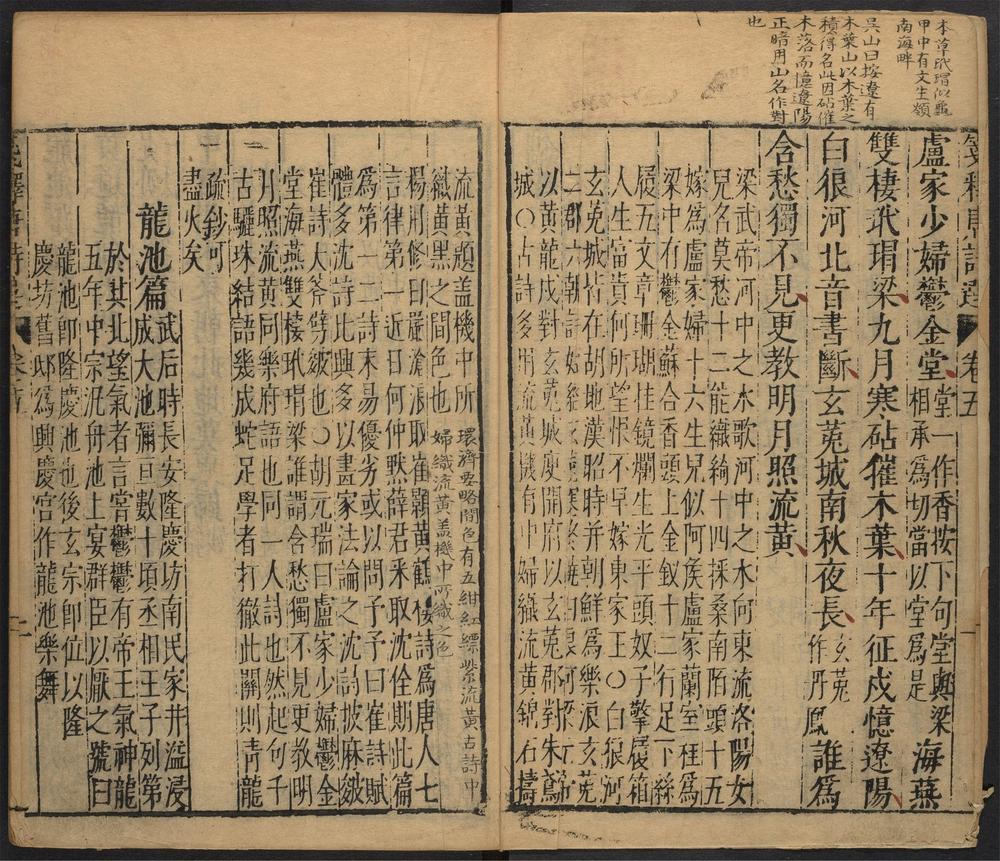 本草玳瑁似龜
甲中有文生類
南海畔
吳山曰按遼有
木葉山以木葉之
積得名此因砧催
木落而憶遼陽
正暗用山名作對
也
箋釋唐詩選 卷五 一
盧家少婦鬱金堂堂一作香按下句堂與梁相承爲切當以堂爲是海燕
雙棲玳瑁梁九月寒砧催木葉十年征戍憶遼陽
白狼河北音書斷玄菟城南秋夜長玄菟作丹鳳誰爲
含愁獨不見更教明月照流黃
梁武帝河中之水歌河中之水向東流洛陽女
兒名莫愁十二能織綺十四採桑南陌頭十五
嫁爲盧家婦十六生兒似阿侯盧家蘭室桂爲
梁中有鬱金蘇合香頭上金釵十二行足下絲
履五文章珊瑚挂鏡爛生光平頭奴子擎履箱
人生富貴何所望恨不早嫁東家王○白狼河
玄菟城皆在胡地漢昭時并朝鮮爲樂浪玄菟
二郡六朝詩
以黃龍戍對玄菟城庾開府以玄菟郡對朱鳶
城○古詩多用流黃機有中婦織流黃錦石擣
流黃題蓋機中所環濟要略間色有五紺紅縹紫流黃古詩中
織黃黑之間色也婦織流黃蓋機中所織之色
楊用修曰嚴滄浪取崔顥黃鶴樓詩爲唐人七
言律第一近日何仲默薛君采取沈佺期此篇
爲第一二詩未易優劣或以問予予曰崔詩賦
體多沈詩比興多以畫家法論之沈詩披麻皴
崔詩大斧劈皴也○胡元瑞曰盧家少婦鬱金
堂海燕雙棲玳瑁梁誰謂含愁獨不見更教明
月照流黃同樂府語也同一人詩也然起句千
古驪珠結語幾成蛇足學者打徹此關則青龍
疏鈔可
盡火矣
龍池篇武后時長安隆慶坊南民家井溢浸
成大池彌亘數十頃丞相王子列第
於其北望氣者言常鬱鬱有帝王氣神龍
五年中宗汎舟池上宴群臣以厭之號曰
龍池即隆慶池也後玄宗即位以隆
慶坊舊邸爲興慶宮作龍池樂舞